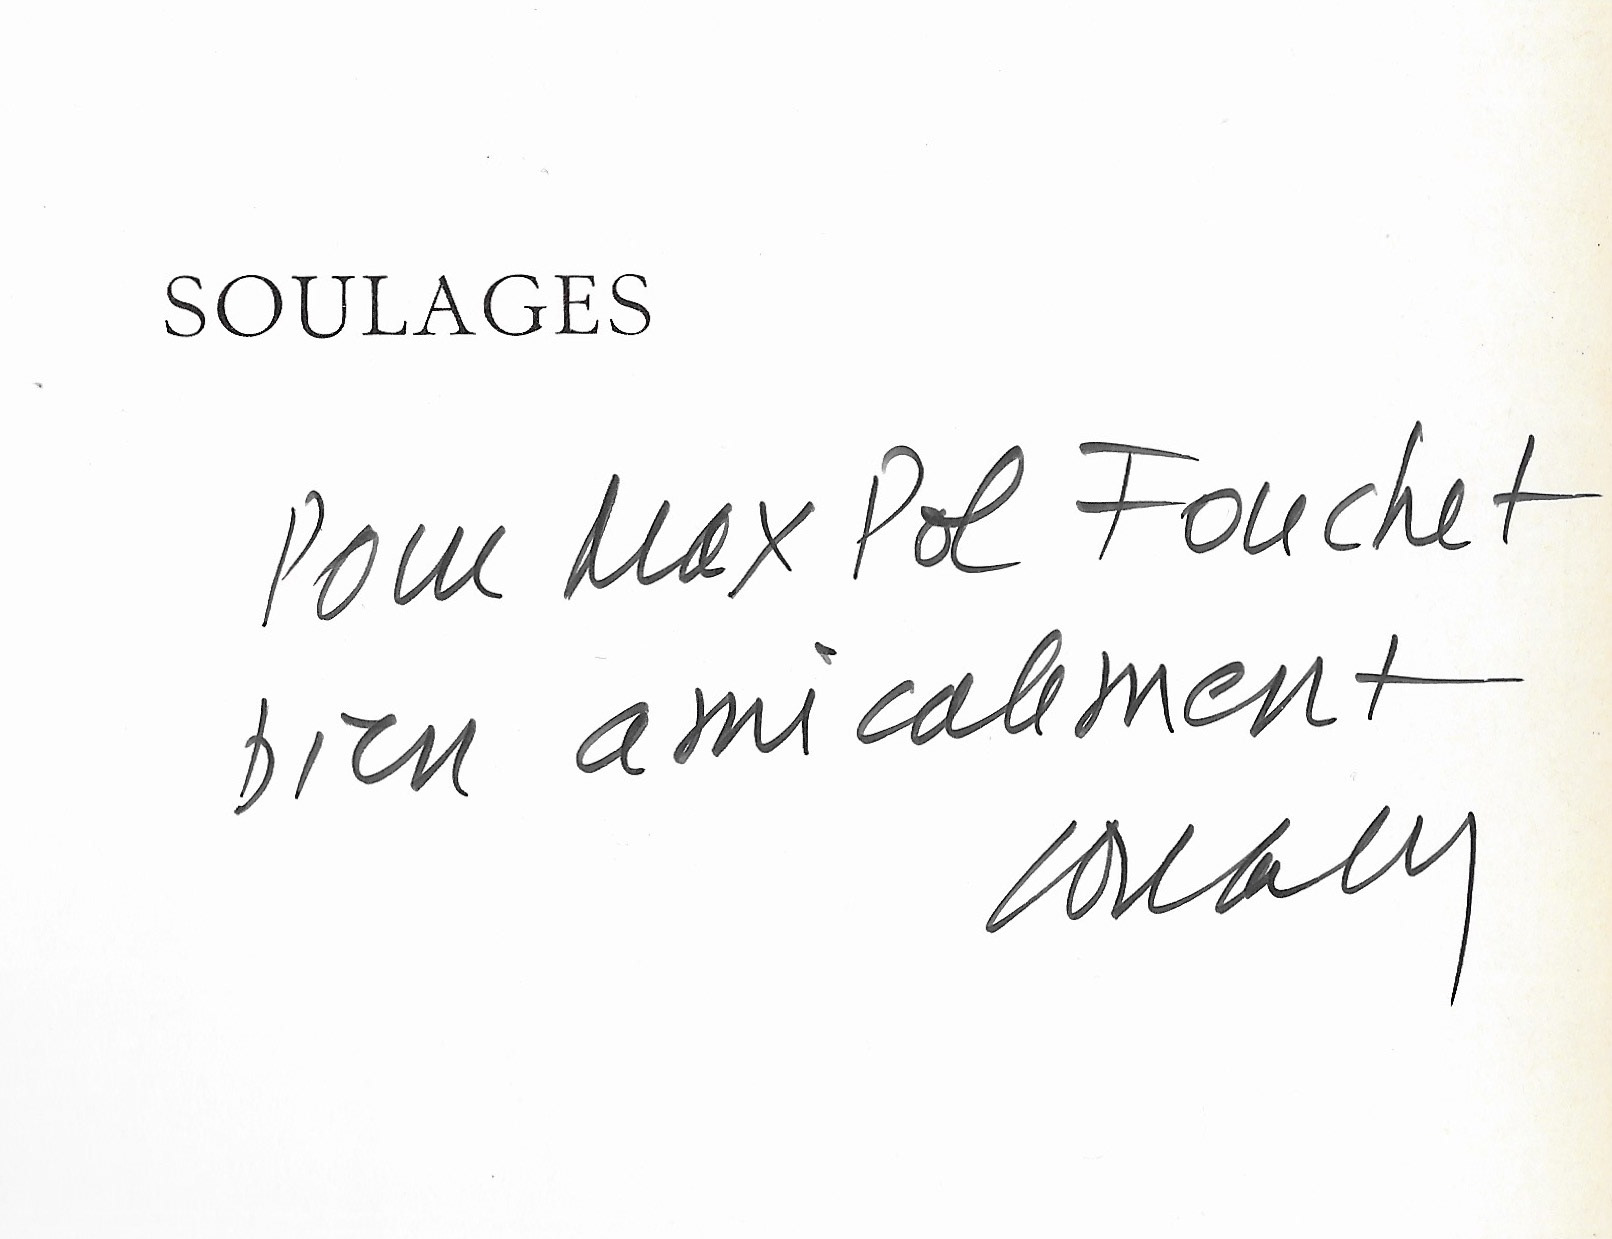 SOULAGES
Pour Max Pol Fouchet
bien amicalement